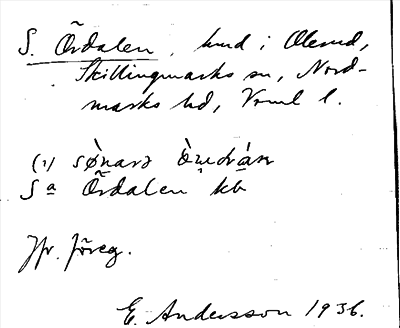 S. Ördalen, hmd i Olerud,
Skillingmarks sn, Nord-
marks hd, Vrml l.
(1) sø̀narə
Sa Ördalen kb
Jfr. föreg.
E. Andersson 1936.